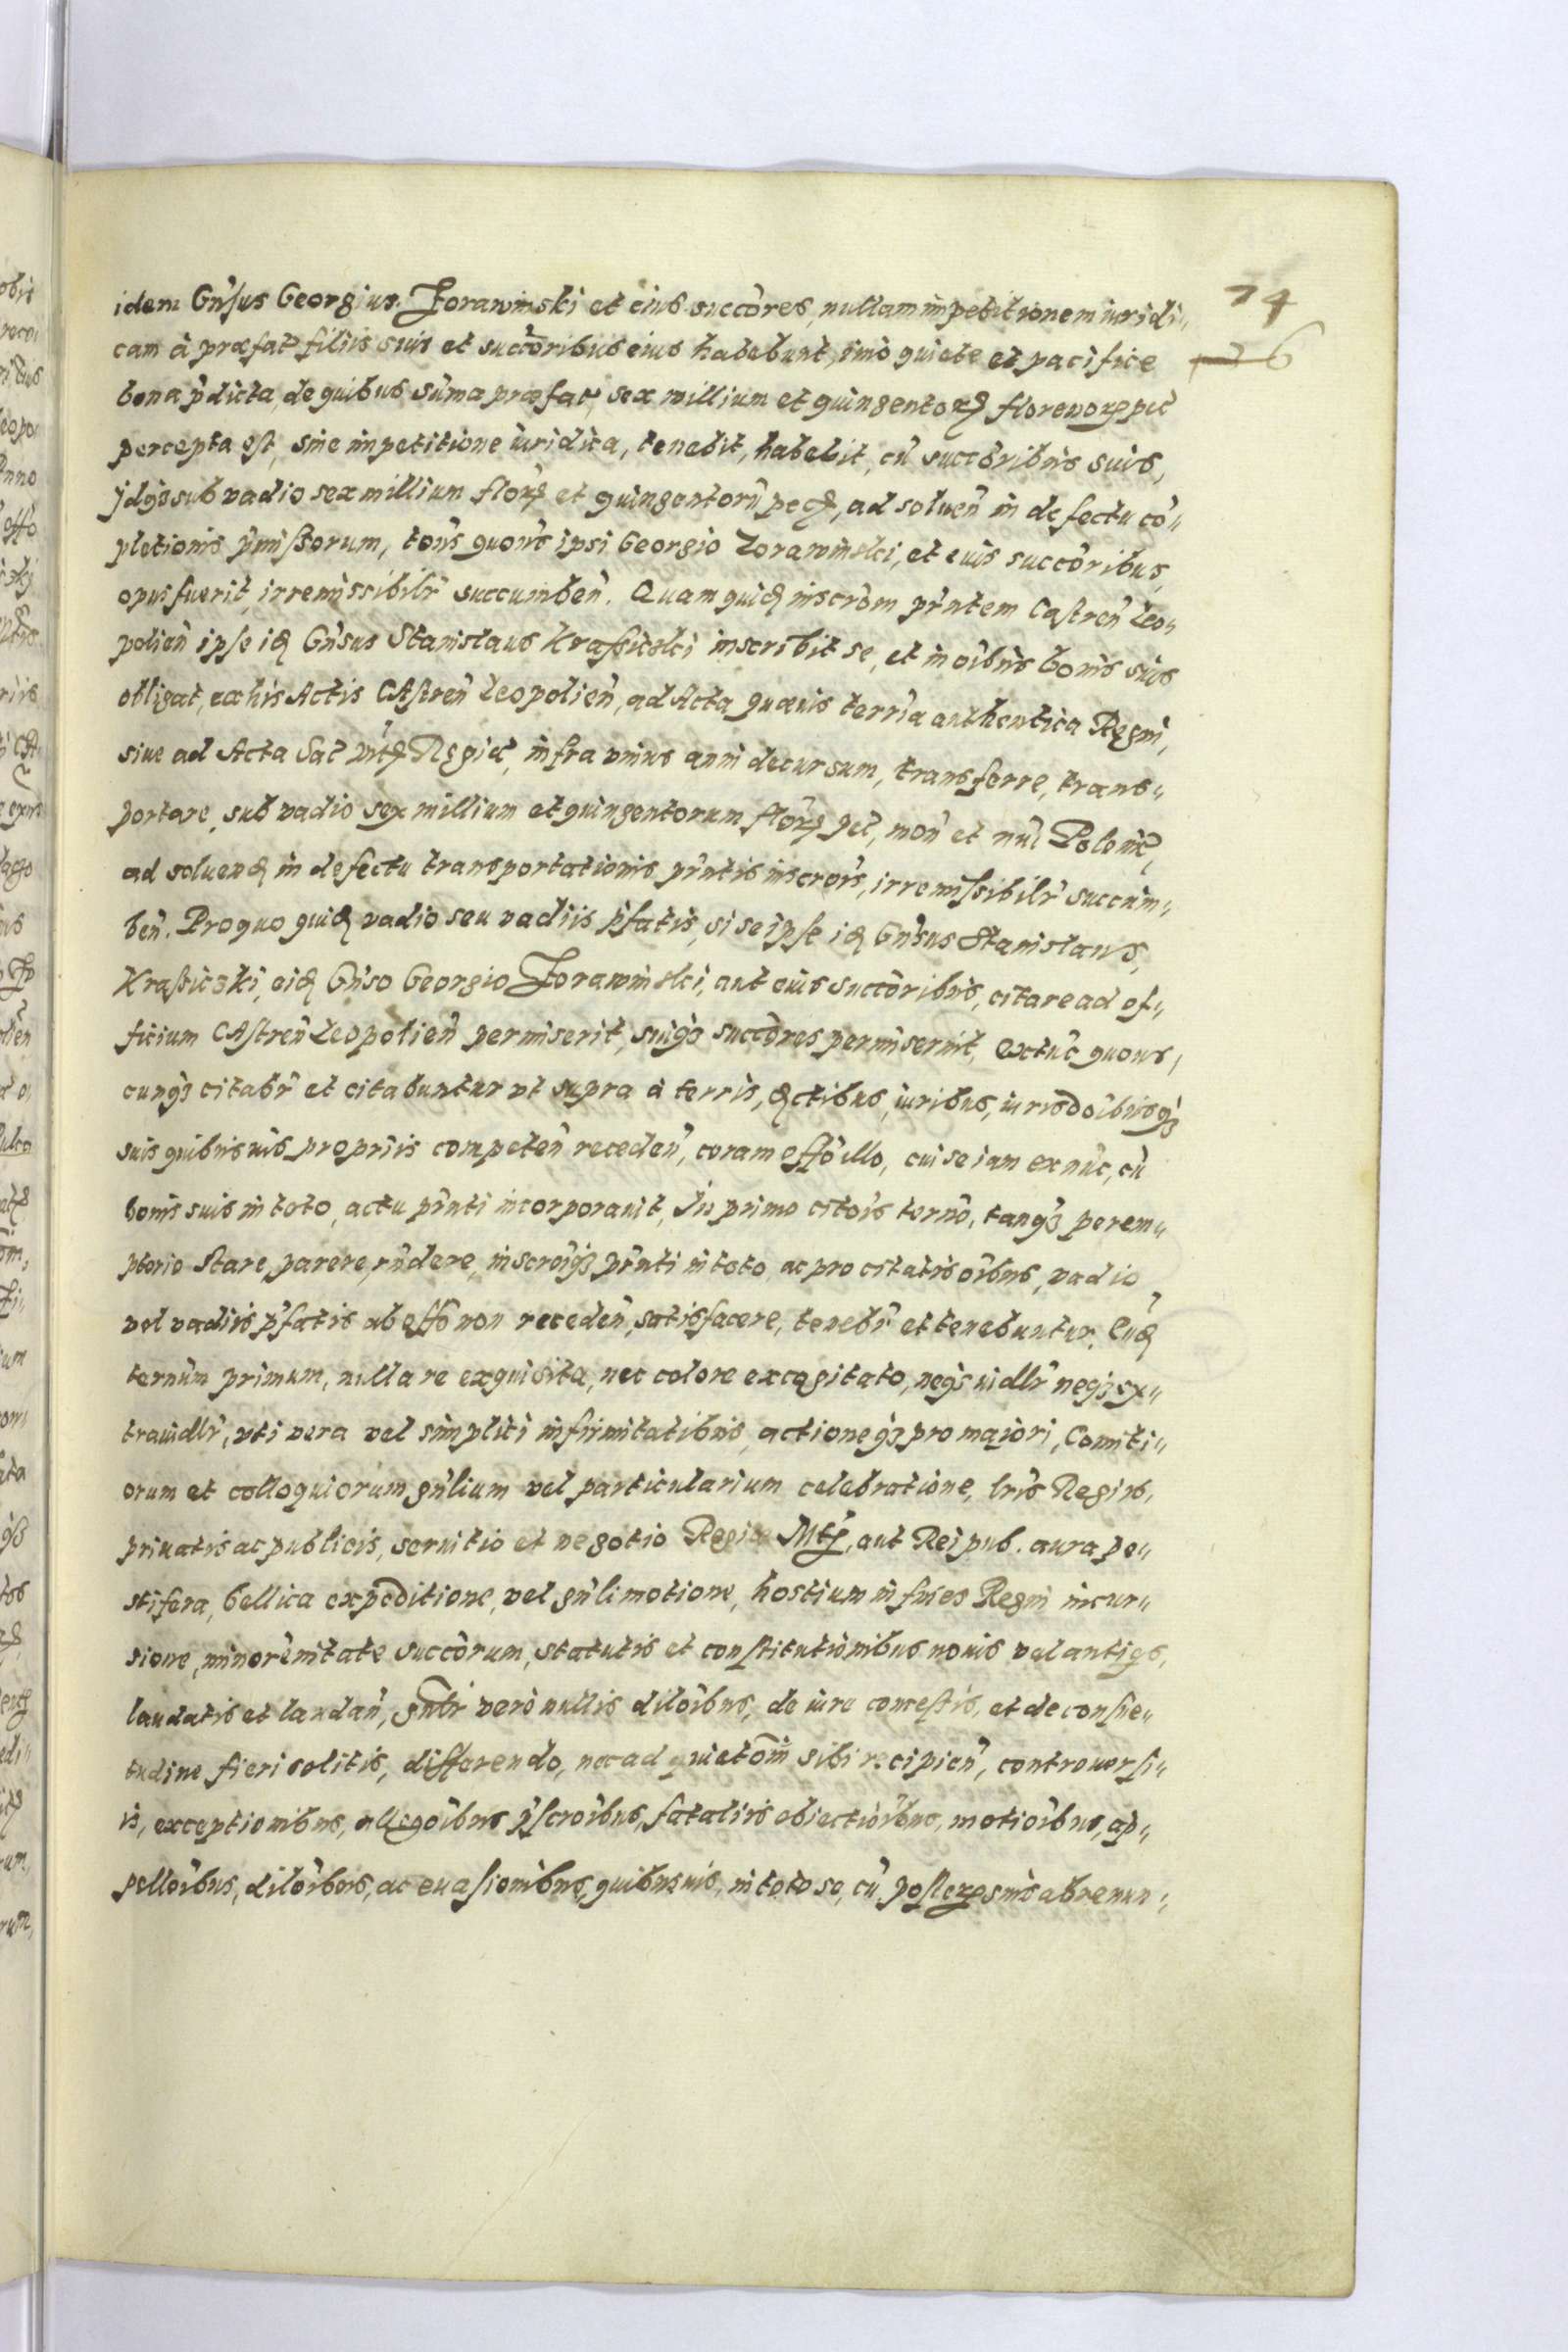 74
26
idem Gn̄sus Georgius Zorawinski et eius succōres, nullam impetitionem iuridi„
cam à præfat̄ filiis suis et succōribus eius habebunt, imò quiete et pacifice
bona p̄dicta, de quibus sum̄a præfat̄, sex millium et quingentoꝝ florenoꝝ pec̄
percepta est, sine impetitione iuridica, tenebit, habebit, cū succōribus suis,
jdqꝫ sub vadio sex millium floꝝ et quingentorū pec̄, ad soluen̄ in defectu cō„
pletionis p̄missorum, tōns quōns ipsi Georgio Zorawinski, et euis succōribus,
opus fuerit, irremissibilr̄ succumben̄. Quam quid̄ inscrōm pn̄tem Castren̄ Leo„
polien̄ ipse id̄ Gn̄sus Stanislaus Krassicski inscribit se, et in oībus bonis suis
obligat, ex his Actis CAstren̄ Leopolien̄, ad Acta quæuis terrīa authentica Regni,
siue ad Acta Sac̄ Mt̄ꝭ Regiæ, infra vnius anni decursum, transferre, trans„
portare, sub vadio sex millium et quingentorum floꝝ pec̄, mon̄ et nūi Polonic̄,
ad soluend̄ in defectu transportationis pn̄tis inscrōis, irremissibilr̄ succum„
ben̄. Pro quo quid̄ vadio seu vadiis p̄fatis, si se ipse id̄ Gn̄sus Stanislaus,
Krassicski, eid̄ Gn̄so Georgio Zorawinski, aut eius succōribus, citare ad of„
ficium CAstren̄ Leopolien̄ permiserit, suiqꝫ succōres permiserint, extūc quouis,
cunqꝫ citabr̄ et citabuntur vt supra à terris, dc̄tibus, iuribus, iurisdoībusqꝫ
suis quibusuis propriis competen̄ receden̄, coram offō illo, cui se iam ex nūc, cū
bonis suis in toto, actu pn̄ti incorporauit, In primo citōis termō, tanqꝫ perem„
ptorio stare, parere, rn̄dere, inscrōiqꝫ pn̄ti in toto, ac pro citatis oībus, vadio
vel vadiis p̄fatis ab offō non receden̄, satisfacere, tenebr̄ et tenebuntur. Eud̄
ternūm primum, nulla re exquisita, nec colore excogitato, neqꝫ iudlr̄ neqꝫ ex„
traiudlr̄, vti vera vel simplici infirmitatibus, actioneqꝫ pro maiori, Comiti„
orum et colloquiorum gn̄lium vel particularium celebratione, lrīs Regiis,
priuatis ac publicis, seruitio et negotio Regiæ Mt̄ꝭ, aut Reipub. aura pe„
stifera, bellica expeditione, vel gn̄li motione, hostium in fines Regni incur„
sione, minorēnitate succōrum, statutis et constitutionibus nouis vel antiqs,
laudatis et laudan̄, gn̄lr̄ verò nullis dilōibus, de iure concessis, et de consue„
tudine fieri solitis, differendo, nec ad quietōm sibi recipien̄, controuersi„
is, exceptionibus, allegōibus, p̄scrōibus, fataliis obiectiōibus, motiōibus, ap„
pellōibus, dilōibus, ac euasionibus, quibusuis, in toto se, cū posteꝝ suis abrenun„